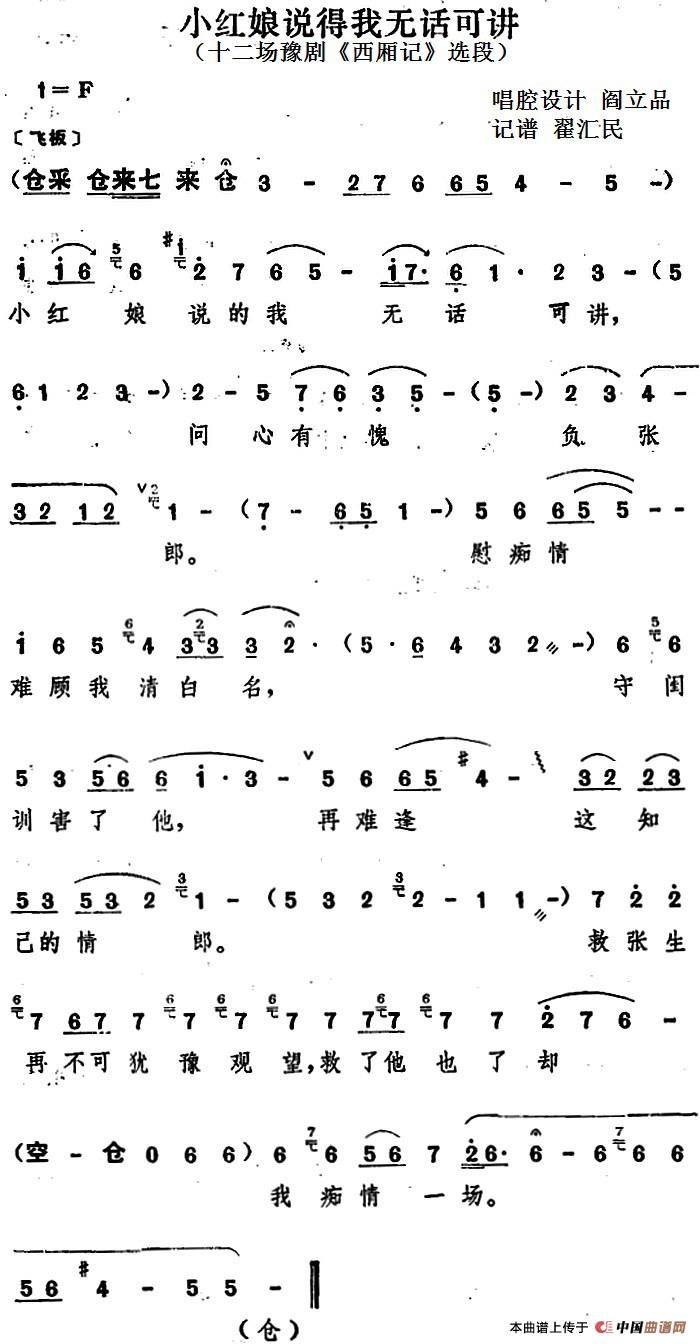 小红娘说得我无话可讲
（十二场豫剧《西厢记》选段）
1=F
唱腔设计 阎立品
〔飞板〕
记谱 翟汇民
（仓采 仓来七 来 仓 3 - 2 7 6 6 5 4 - 5 -）
i i 6 5 6 #i 2 7 6 5 - i 7· 6 1· 2 3 -（5
小红 娘 说的我 无 话 可讲，
6 1 2 3 -）2 - 5 7 6 3 5 -（5 -）2 3 4 -
问 心有 愧 负 张
3 2 1 2 ∨ 2 1 -（7 - 6 5 1 -）5 6 6 5 5 - -
郎。 慰痴情
i 6 5 6 4 3 2 3 3 2·（5· 6 4 3 2 -）6 5 6
难顾我清白名， 守闺
5 3 5 6 6 i· 3 - ∨ 5 6 6 5 #4 - 3 2 2 3
训害了他， 再难逢 这知
5 3 5 3 2 3 1 -（5 3 2 3 2 - 1 1 -）7 2 2
己的情 郎。 救张生
6 7 6 7 7 6 7 6 7 6 7 7 6 7 6 7 7 7 2 7 6 -
再不可犹豫观望，救了他也了却
（空 - 仓 0 6 6）6 7 6 5 6 7 2 6· 6 - 6 7 6 6
我痴情一场。
5 6 #4 - 5 5 -
（仓）
本曲谱上传于 中国曲谱网